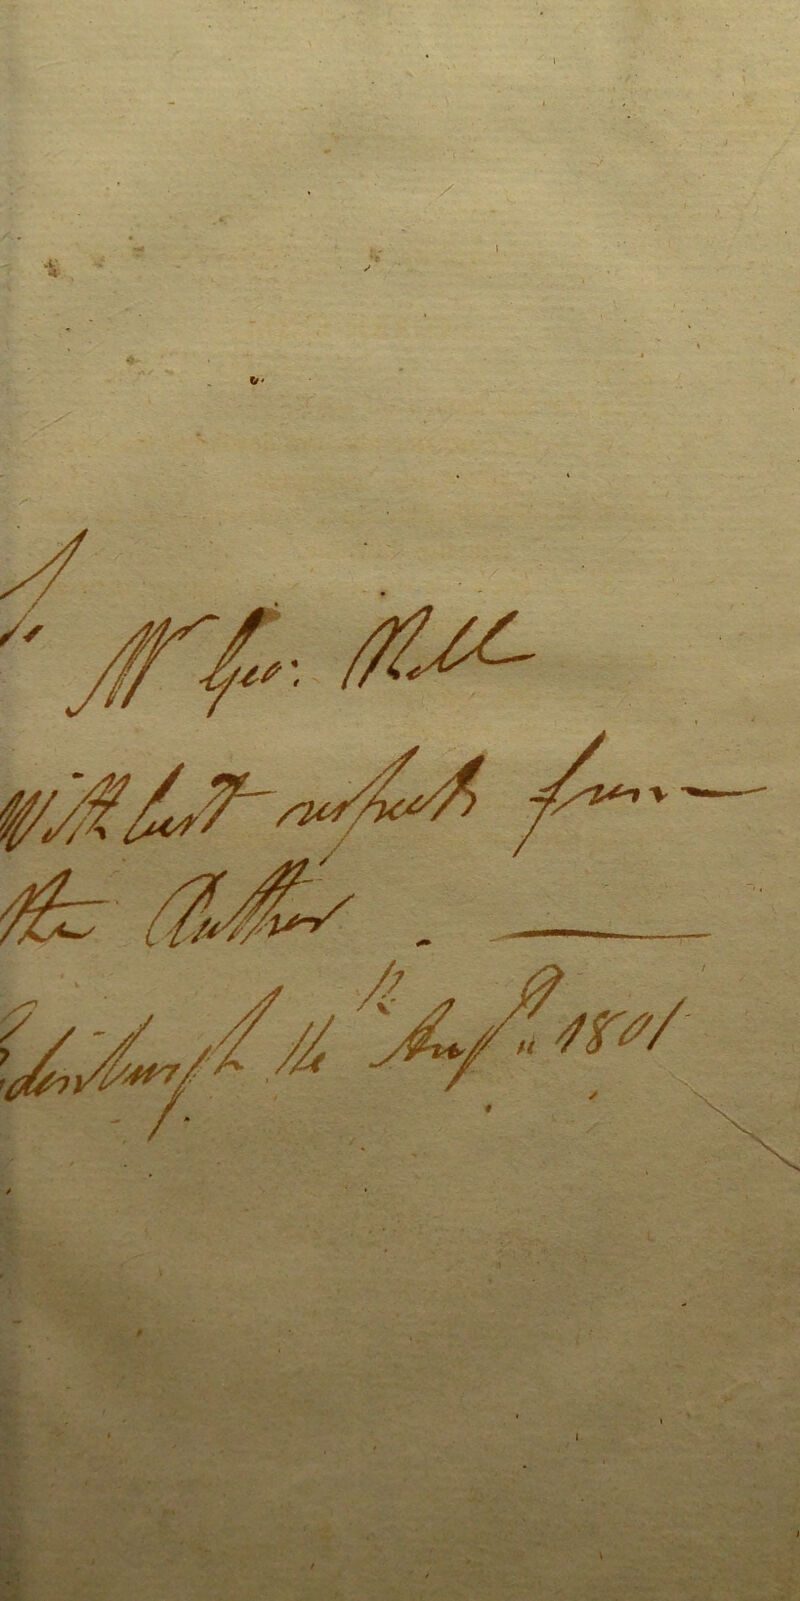 To
Mr Geo: Bell
With best respects from
the Author. —
Edinburgh the Augt 1801